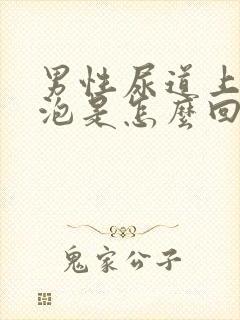 男性尿道上
泡是怎麼回
鬼家公子